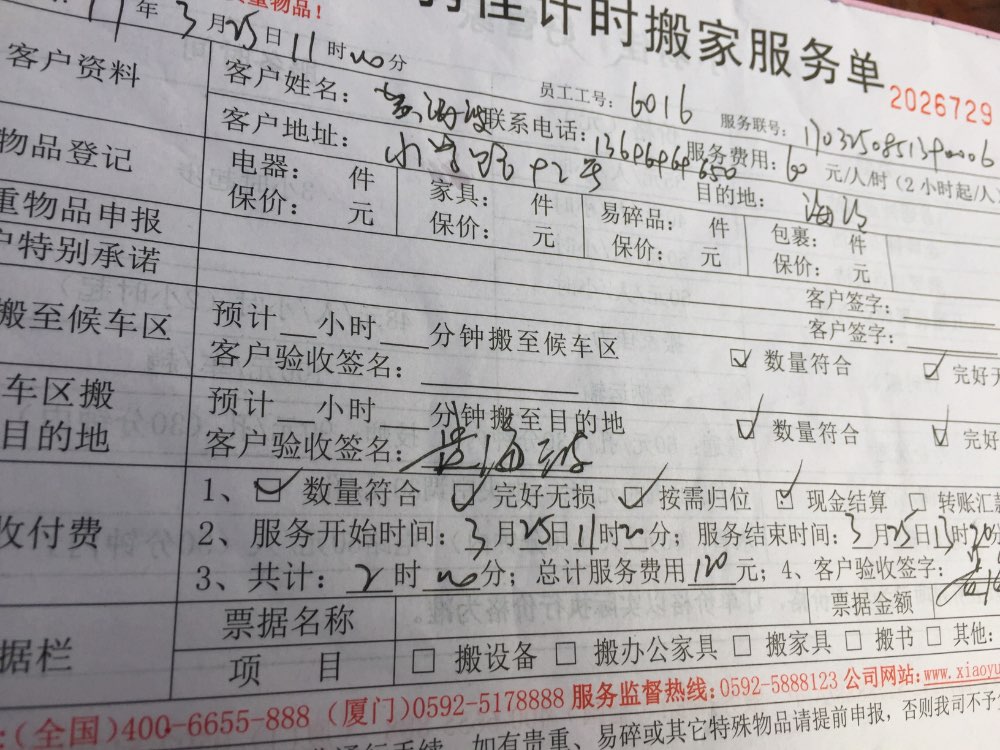 重物品！
计时搬家服务单 2026729
年 3 月 25 日 11 时 00 分
员工工号： 6016 服务联号： 1703250851390006
客户资料 客户姓名： 联系电话： 服务费用： 60 元/人/时（2小时起/人
客户地址： 42号 目的地： 海沧
物品登记 电器： 件 家具： 件 易碎品： 件 包裹： 件
保价： 元 保价： 元 保价： 元 保价： 元
重物品申报 客户签字：
户特别承诺 客户签字：
搬至候车区 预计 小时 分钟搬至候车区 数量符合 完好无
客户验收签名：
车区搬 预计 小时 分钟搬至目的地 数量符合 完好
目的地 客户验收签名：
1、 数量符合 完好无损 按需归位 现金结算 转账汇款
收付费 2、服务开始时间： 3 月 25 日 11 时 20 分；服务结束时间： 3 月 25 日 13 时 20 分
3、共计： 2 时 00 分；总计服务费用 120 元；4、客户验收签字：
据栏 票据名称 票据金额
项 目 搬设备 搬办公家具 搬家具 搬书 其他：
：(全国)400-6655-888 (厦门)0592-5178888 服务监督热线：0592-5888123 公司网站：www.xiaoyu
如有贵重、易碎或其它特殊物品请提前申报，否则我司不予